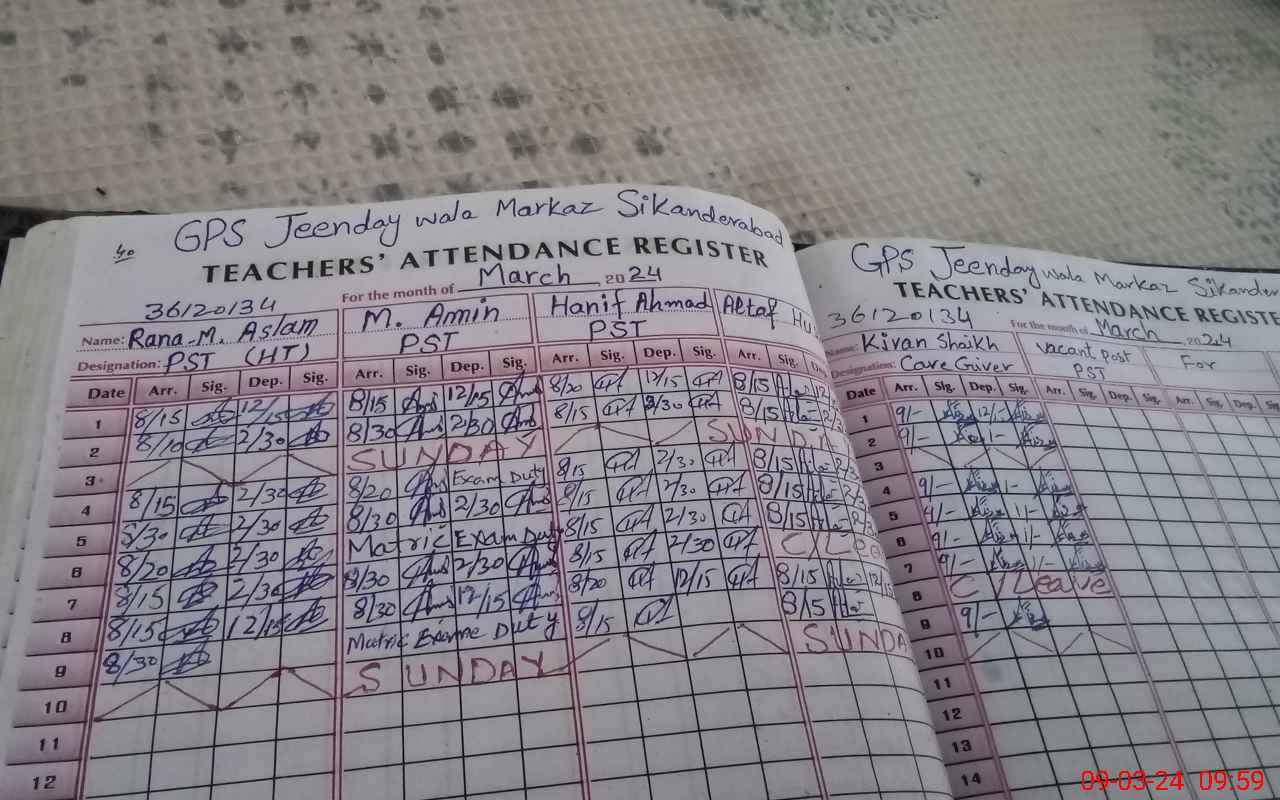 40
GPS Jeenday wala Markaz Sikanderabad
TEACHERS' ATTENDANCE REGISTER
For the month of March 2024
36120134
Name: Rana M. Aslam M. Amin Hanif Ahmad Altaf Hu
Designation: PST (HT) PST PST
Date Arr. Sig. Dep. Sig. Arr. Sig. Dep. Sig. Arr. Sig. Dep. Sig. Arr. Sig. Dep
1 8/15 12/15 8/15 12/15 8/20 12/15 8/15 12
2 8/10 2/30 8/30 2/30 8/15 2/30 8/15 2/3
3 SUNDAY SUNDA
4 8/15 2/30 8/20 Exam Duty 8/15 2/30 8/15 2/3
5 8/30 2/30 8/30 2/30 8/15 2/30 8/15
6 8/20 2/30 Matric Exam Duty 8/15 2/30 8/15
7 8/15 2/30 8/30 2/30 8/15 2/30 C/Lea
8 8/15 12/15 8/30 12/15 8/20 12/15 8/15 12/15
9 8/30 Matric Exame Duty 8/15 8/15
10 SUNDAY SUNDA
11
12
GPS Jeenday wala Markaz Sikander
TEACHERS' ATTENDANCE REGISTE
36120134 For the month of March 2024
Name: Kivan Shaikh vacant post For
Designation: Care Giver PST
Date Arr. Sig. Dep. Sig. Arr. Sig. Dep. Sig. Arr. Sig. Dep. Sig.
1 9/- 12/-
2 9/- 1/-
3
4 9/- 1/-
5 9/- 1/-
6 9/- 1/-
7 9/- 1/-
8 C/Leave
9 9/-
10
11
12
13
14
09-03-24 09:59